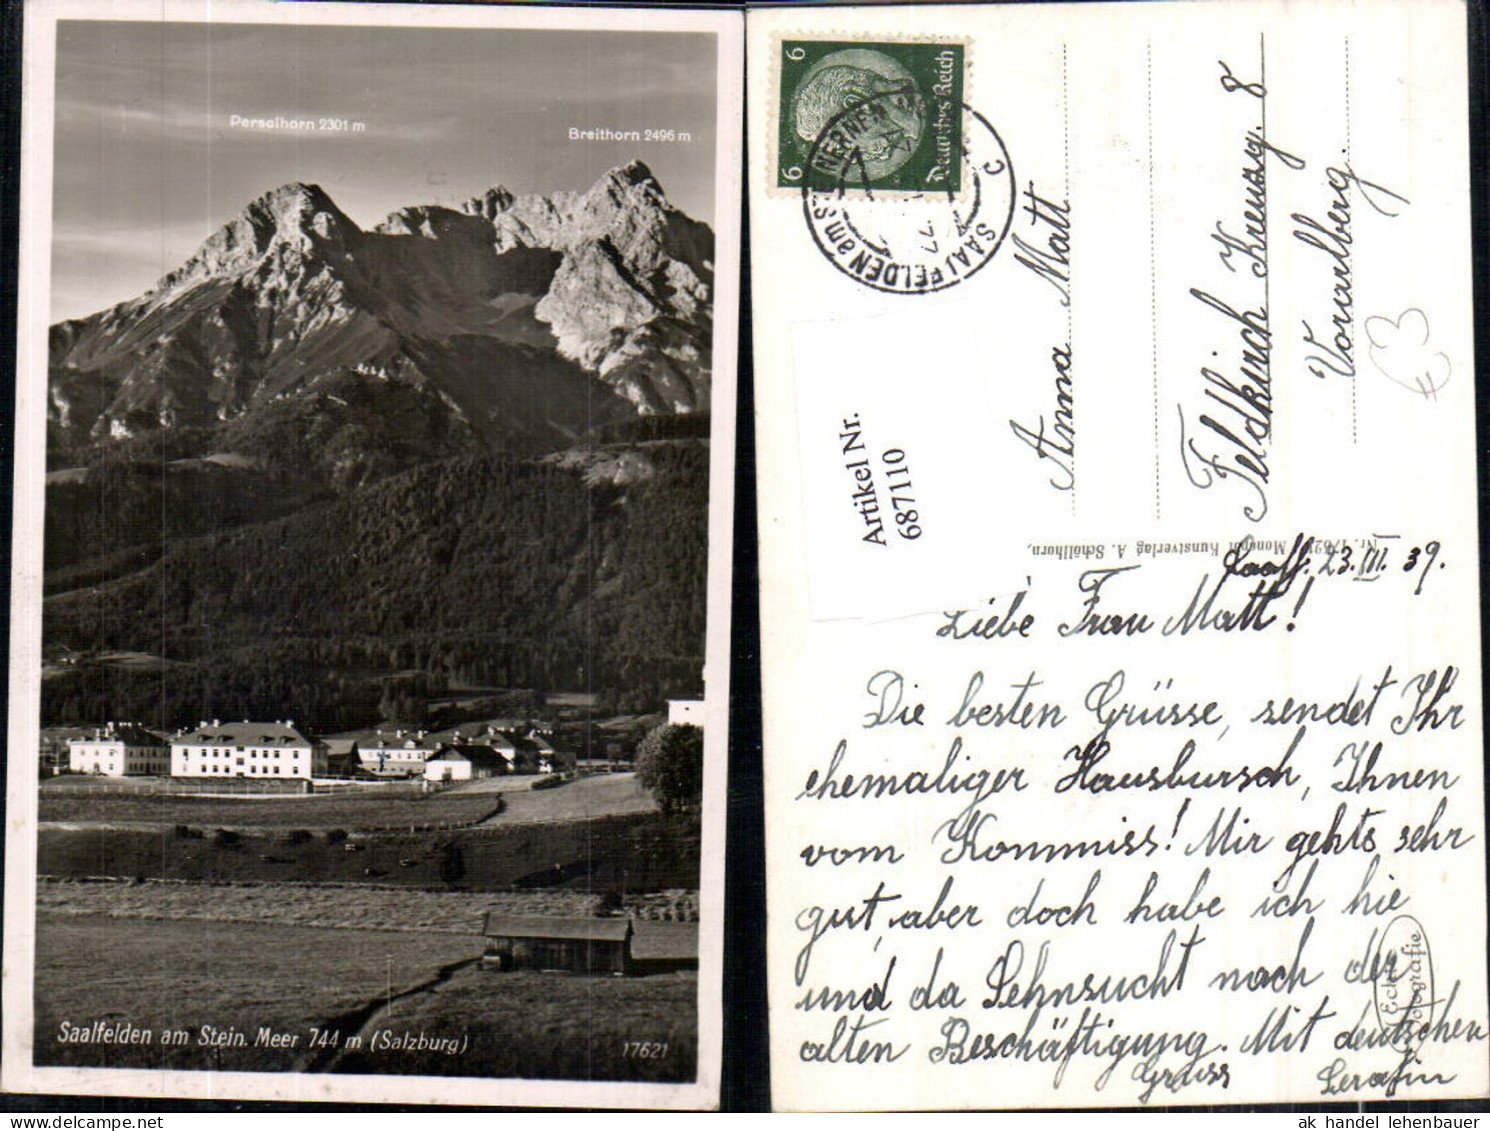 Perselhorn 2301 m
Breithorn 2496 m
Saalfelden am Stein. Meer 744 m (Salzburg)
17621
6 6
Deutsches Reich
SAALFELDEN am STEINERNEN
C
Artikel Nr.
687110
Anna Matt
Feldkirch Kreuzg. 8
Vorarlberg.
€3
Nr. 17621 Monopol Kunstverlag A. Schöllhorn,
Saalf. 23.III.39.
Liebe Frau Matt!
Die besten Grüsse, sendet Ihr
ehemaliger Hausbursch, Ihnen
vom Kommiss! Mir gehts sehr
gut, aber doch habe ich hie
und da Sehnsucht nach der
alten Beschäftigung. Mit deutschen
Gruss Serafin
Echte
Fotografie
ak handel lehenbauer